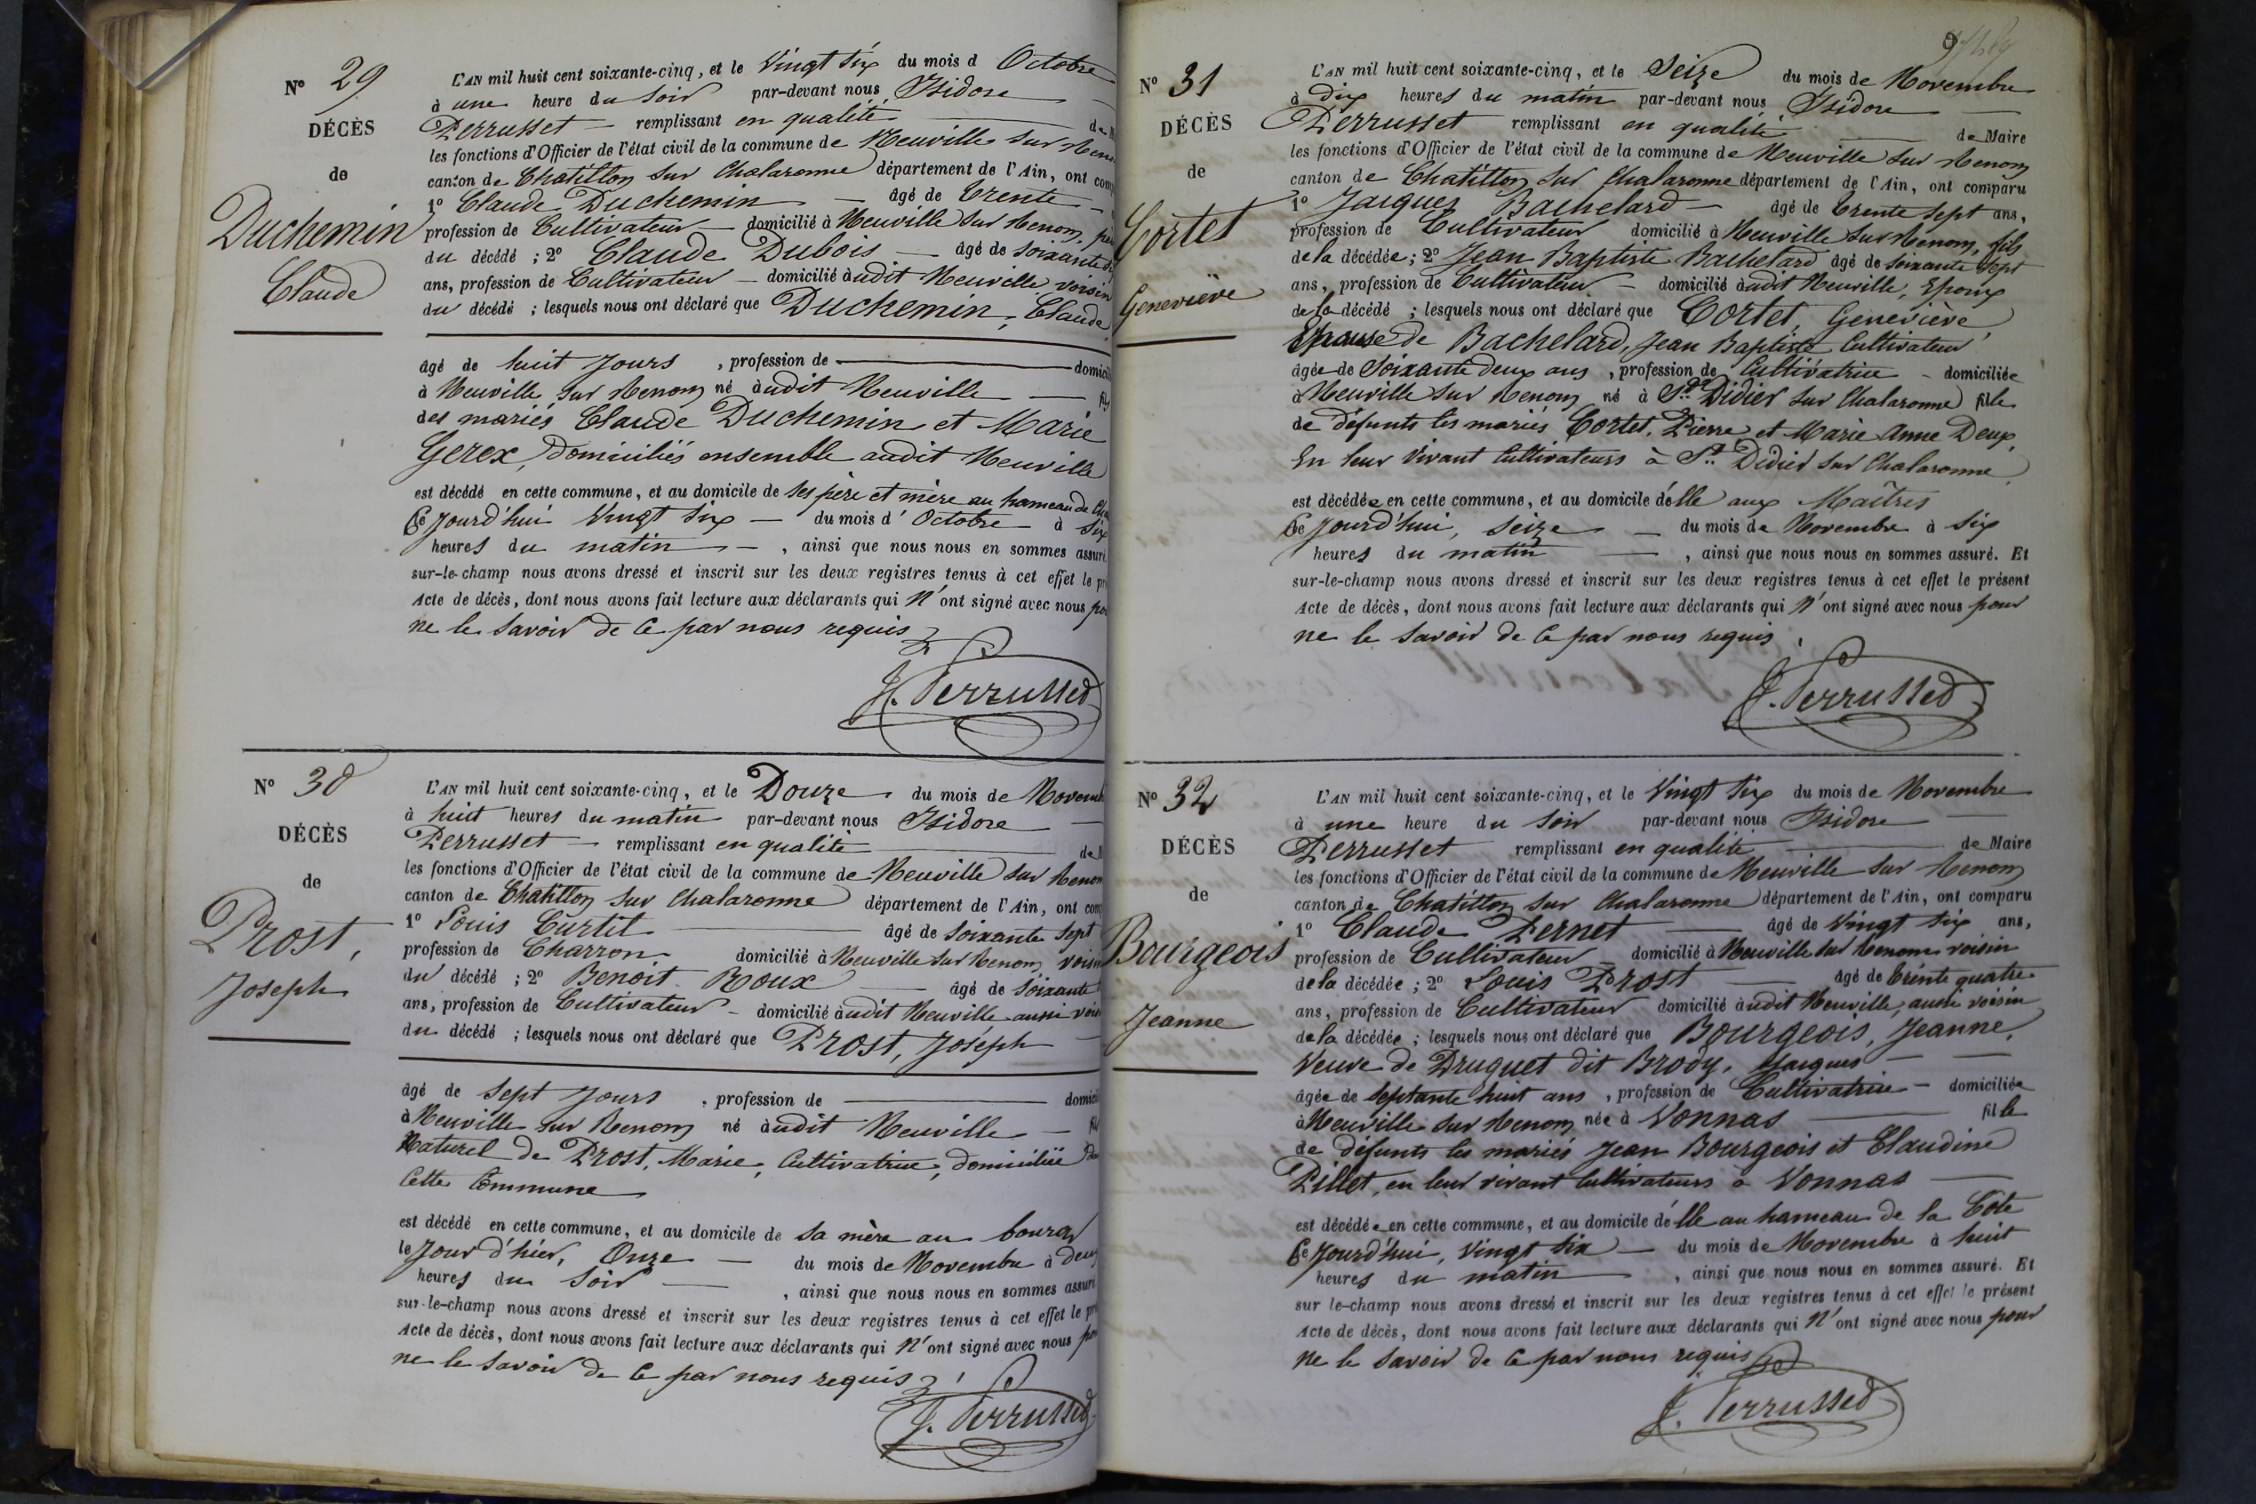 N° 29
DÉCÈS
de
Duchemin
Claude
L'AN mil huit cent soixante-cinq, et le Vingt six du mois d Octobre
à une heure du soir par-devant nous Isidore
Perrusset remplissant en qualité
les fonctions d'Officier de l'état civil de la commune de Neuville sur
canton de Chatillon sur Chalaronne département de l'Ain, ont
1° Claude Duchemin âgé de trente
profession de Cultivateur domicilié à Neuville sur Renom,
du décédé ; 2° Claude Dubois âgé de soixante
ans, profession de Cultivateur domicilié audit Neuville voisin
du décédé ; lesquels nous ont déclaré que Duchemin, Claude
âgé de huit jours , profession de
à Neuville sur Renom né audit Neuville
des mariés Claude Duchemin et Marie
Gerex, domiciliés ensemble audit Neuville
est décédé en cette commune, et au domicile de ses père et mère au hameau de
Ce jourd'hui Vingt six du mois d' Octobre à six
heures du matin , ainsi que nous nous en sommes assuré.
sur-le-champ nous avons dressé et inscrit sur les deux registres tenus à cet effet le
Acte de décès, dont nous avons fait lecture aux déclarants qui n'ont signé avec nous
ne le savoir de ce par nous requis
J. Perrusset
N° 30
DÉCÈS
de
Prost,
Joseph
L'AN mil huit cent soixante-cinq, et le Douze du mois de
à huit heures du matin par-devant nous Isidore
Perrusset remplissant en qualité
les fonctions d'Officier de l'état civil de la commune de Neuville sur Renom
canton de Chatillon sur Chalaronne département de l'Ain, ont
1° Louis Curtil âgé de soixante sept
profession de Charron, domicilié à Neuville sur Renom, voisin
du décédé ; 2° Benoit Roux âgé de soixante
ans, profession de Cultivateur domicilié audit Neuville aussi
du décédé ; lesquels nous ont déclaré que Prost, Joseph
âgé de sept jours , profession de
à Neuville sur Renom né audit Neuville
Naturel de Prost, Marie, Cultivatrice, domiciliée
Cette Commune
est décédé en cette commune, et au domicile de sa mère au bourg
le jour d'hier, Onze du mois de Novembre à deux
heures du soir , ainsi que nous nous en sommes assuré
sur-le-champ nous avons dressé et inscrit sur les deux registres tenus à cet effet le
Acte de décès, dont nous avons fait lecture aux déclarants qui n'ont signé avec nous
ne le savoir de ce par nous requis
J. Perrusset
N° 31
DÉCÈS
de
Cortet
Geneviève
L'AN mil huit cent soixante-cinq, et le Seize du mois de Novembre
à dix heures du matin par-devant nous Isidore
Perrusset remplissant en qualité de Maire
les fonctions d'Officier de l'état civil de la commune de Neuville sur Renom
canton de Chatillon sur Chalaronne département de l'Ain, ont comparu
1° Jacques Bachelard âgé de trente sept ans,
profession de Cultivateur domicilié à Neuville sur Renom, fils
de la décédée ; 2° Jean Baptiste Bachelard âgé de soixante sept
ans, profession de Cultivateur domicilié audit Neuville, Epoux
de la décédé ; lesquels nous ont déclaré que Cortet, Geneviève,
Epouse de Bachelard, Jean Baptiste Cultivateur
âgée de soixante deux ans , profession de Cultivatrice domiciliée
à Neuville sur Renom né à St Didier sur Chalaronne fille
de défunts les mariés Cortet, Pierre et Marie Anne Deux,
En leur vivant Cultivateurs à St Didier sur Chalaronne
est décédée en cette commune, et au domicile d'elle aux Maîtres
Ce jourd'hui, seize du mois de Novembre à six
heures du matin , ainsi que nous nous en sommes assuré. Et
sur-le-champ nous avons dressé et inscrit sur les deux registres tenus à cet effet le présent
Acte de décès, dont nous avons fait lecture aux déclarants qui n'ont signé avec nous pour
ne le savoir de ce par nous requis
J. Perrusset
N° 32
DÉCÈS
de
Bourgeois
Jeanne
L'AN mil huit cent soixante-cinq, et le Vingt six du mois de Novembre
à une heure du soir par-devant nous Isidore
Perrusset remplissant en qualité de Maire
les fonctions d'Officier de l'état civil de la commune de Neuville sur Renom
canton de Chatillon sur Chalaronne département de l'Ain, ont comparu
1° Claude Pernet âgé de vingt six ans,
profession de Cultivateur domicilié à Neuville sur Renom voisin
de la décédée ; 2° Louis Prost âgé de trente quatre
ans, profession de Cultivateur domicilié audit Neuville, aussi voisin
de la décédée ; lesquels nous ont déclaré que Bourgeois, Jeanne,
Veuve de Druguet dit Brody, Jacques
âgée de septante huit ans , profession de Cultivatrice domiciliée
à Neuville sur Renom née à Vonnas fille
de défunts les mariés Jean Bourgeois et Claudine
Pillet, en leur vivant Cultivateurs à Vonnas
est décédée en cette commune, et au domicile d'elle au hameau de la Côte
Ce jourd'hui, Vingt six du mois de Novembre à huit
heures du matin , ainsi que nous nous en sommes assuré. Et
sur le-champ nous avons dressé et inscrit sur les deux registres tenus à cet effet le présent
Acte de décès, dont nous avons fait lecture aux déclarants qui n'ont signé avec nous pour
ne le savoir de ce par nous requis
J. Perrusset